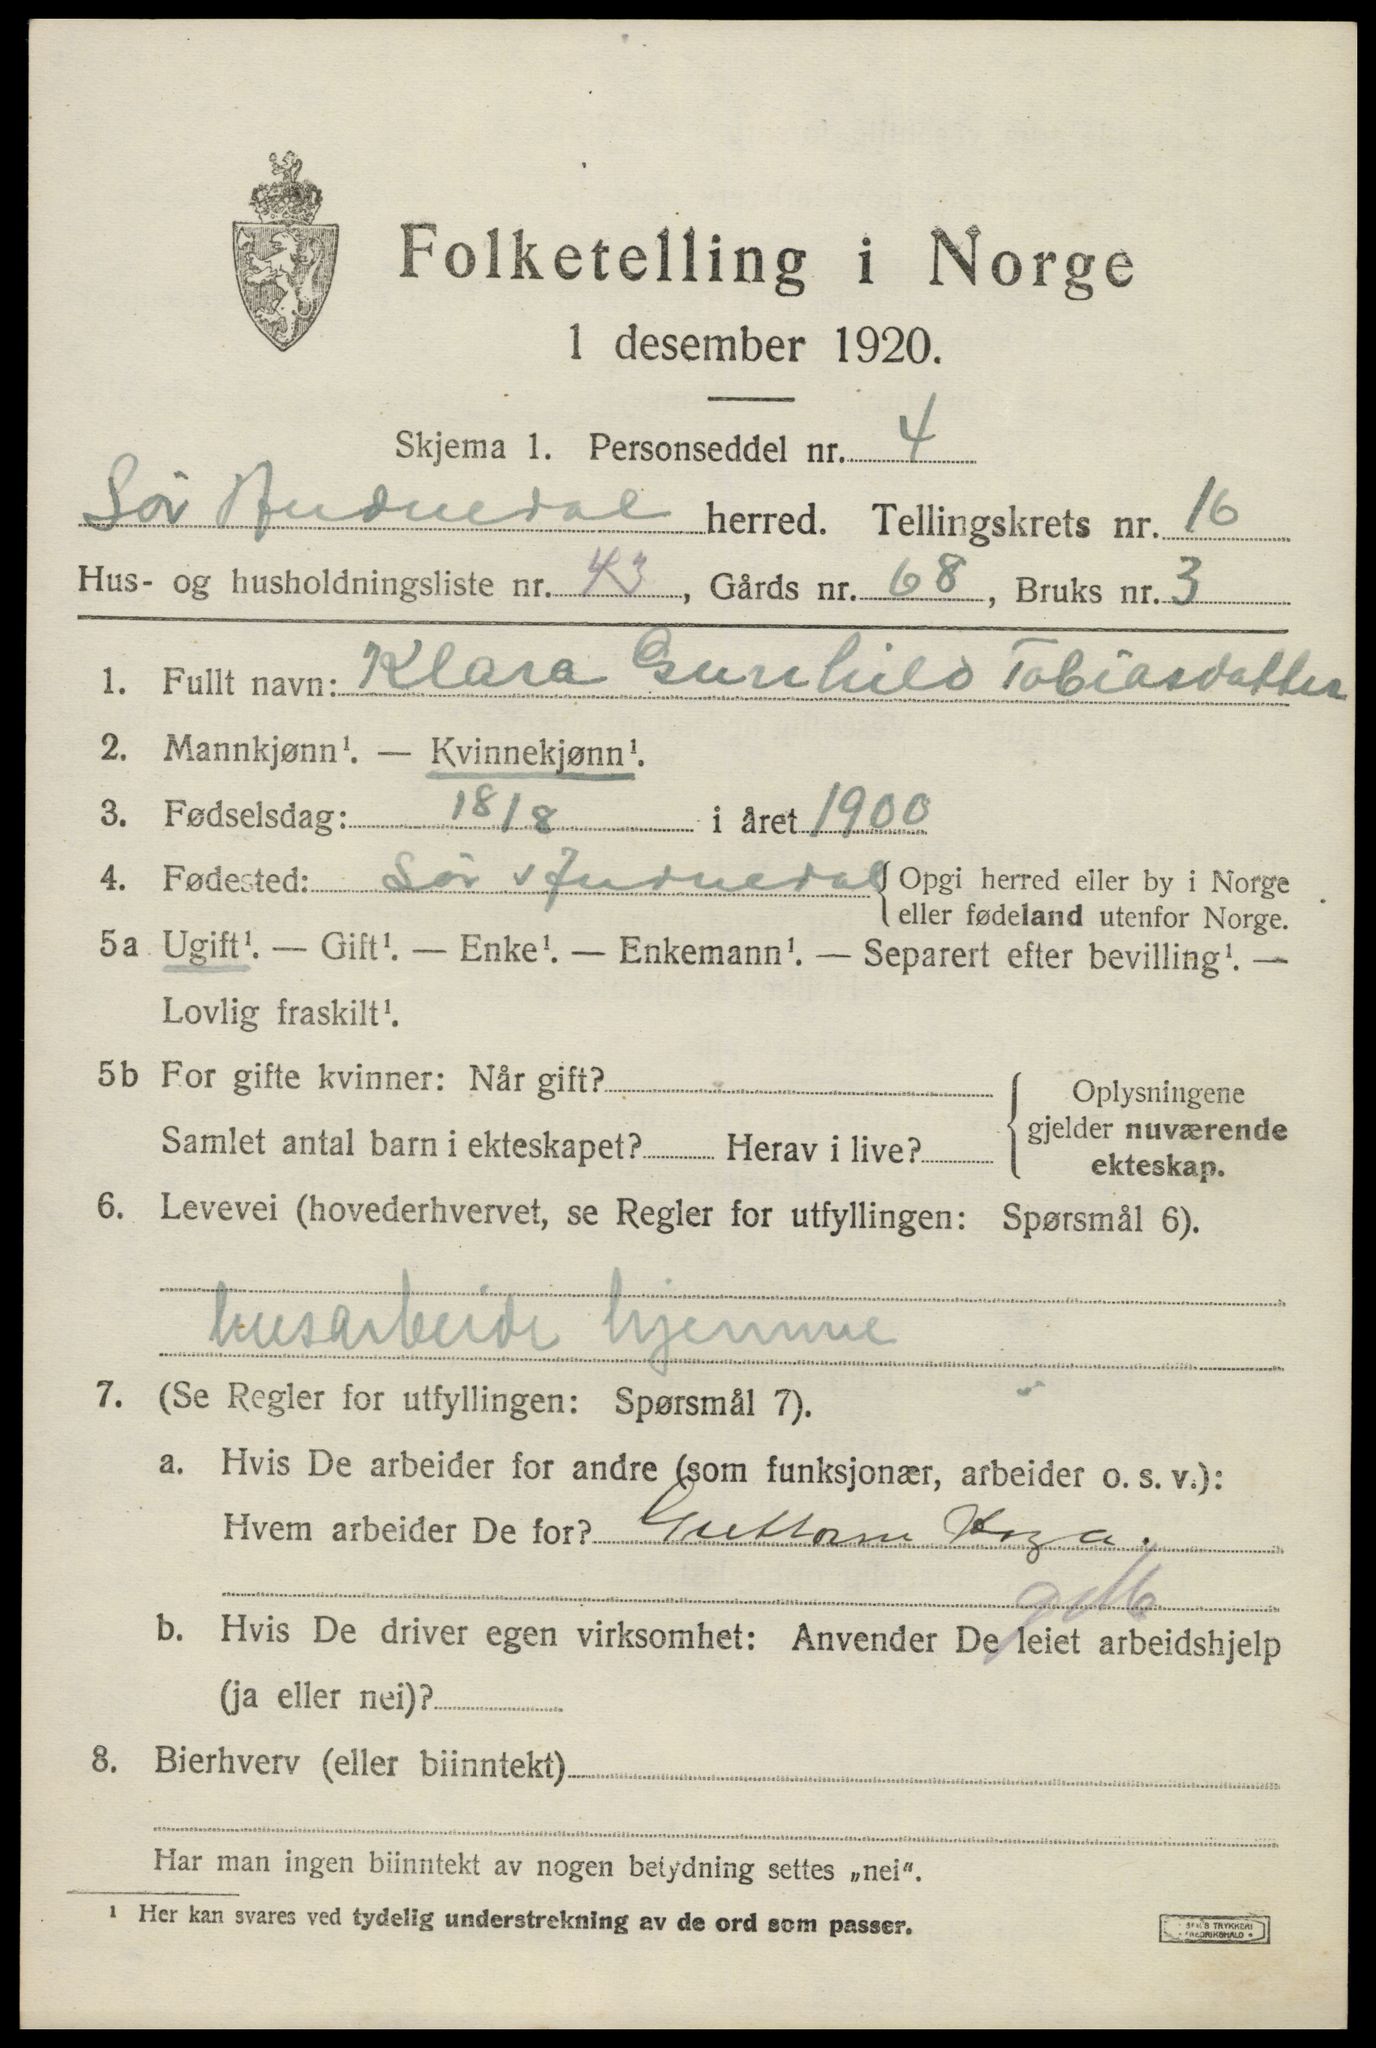 Folketelling i Norge
1 desember 1920.
Skjema 1. Personseddel nr. 4
Sör Audnedal herred. Tellingskrets nr. 16
Hus- og husholdningsliste nr. 43, Gårds nr. 68, Bruks nr. 3
1. Fullt navn: Klara Gunhild Tobiasdatter
2. Mannkjønn¹. — Kvinnekjønn¹.
3. Fødselsdag: 18/8 i året 1900
4. Fødested: Sör Audnedal { Opgi herred eller by i Norge
eller fødeland utenfor Norge.
5a Ugift¹. — Gift¹. — Enke¹. — Enkemann¹. — Separert efter bevilling¹. —
Lovlig fraskilt¹.
5b For gifte kvinner: Når gift?
Samlet antal barn i ekteskapet? Herav i live?
{ Oplysningene
gjelder nuværende
ekteskap.
6. Levevei (hovederhvervet, se Regler for utfyllingen: Spørsmål 6).
husarbeide hjemme
7. (Se Regler for utfyllingen: Spørsmål 7).
a. Hvis De arbeider for andre (som funksjonær, arbeider o. s. v.):
Hvem arbeider De for? Guttorm
b. Hvis De driver egen virksomhet: Anvender De leiet arbeidshjelp
(ja eller nei)?
8. Bierhverv (eller biinntekt)
Har man ingen biinntekt av nogen betydning settes „nei“.
¹ Her kan svares ved tydelig understrekning av de ord som passer.
TRYKKERI
FREDRIKSHALD